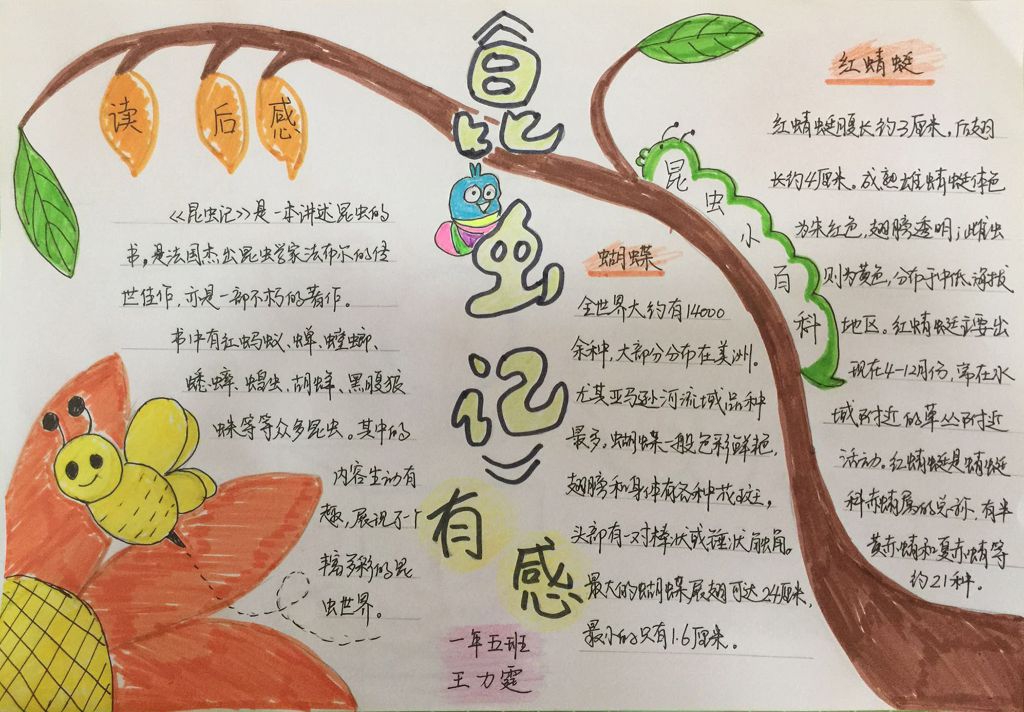 《昆虫记》
有感
读后感
《昆虫记》是一本讲述昆虫的
书。是法国杰出昆虫学家法布尔的传
世佳作，亦是一部不朽的著作。
书中有红蚂蚁、蝉、螳螂、
蟋蟀、蝗虫、胡蜂、黑腹狼
蛛等等众多昆虫。其中的
内容生动有
趣，展现了个
丰富多彩的昆
虫世界。
一年五班
王力霆
蝴蝶
全世界大约有14000
余种，大部分分布在美洲。
尤其亚马逊河流域品种
最多，蝴蝶一般色彩鲜艳，
翅膀和身体有各种花斑，
头部有一对棒状或锤状触角。
最大的蝴蝶展翅可达24厘米，
最小的只有1.6厘米。
昆虫小百科
红蜻蜓
红蜻蜓腹长约3厘米，后翅
长约4厘米。成熟雄蜻蜓体色
为朱红色，翅膀透明；雌虫
则为黄色，分布于中低海拔
地区。红蜻蜓主要出
现在4-12月份，常在水
域附近的草丛附近
活动。红蜻蜓是蜻蜓
科赤蜻属的总称，有半
黄赤蜻和夏赤蜻等
约21种。